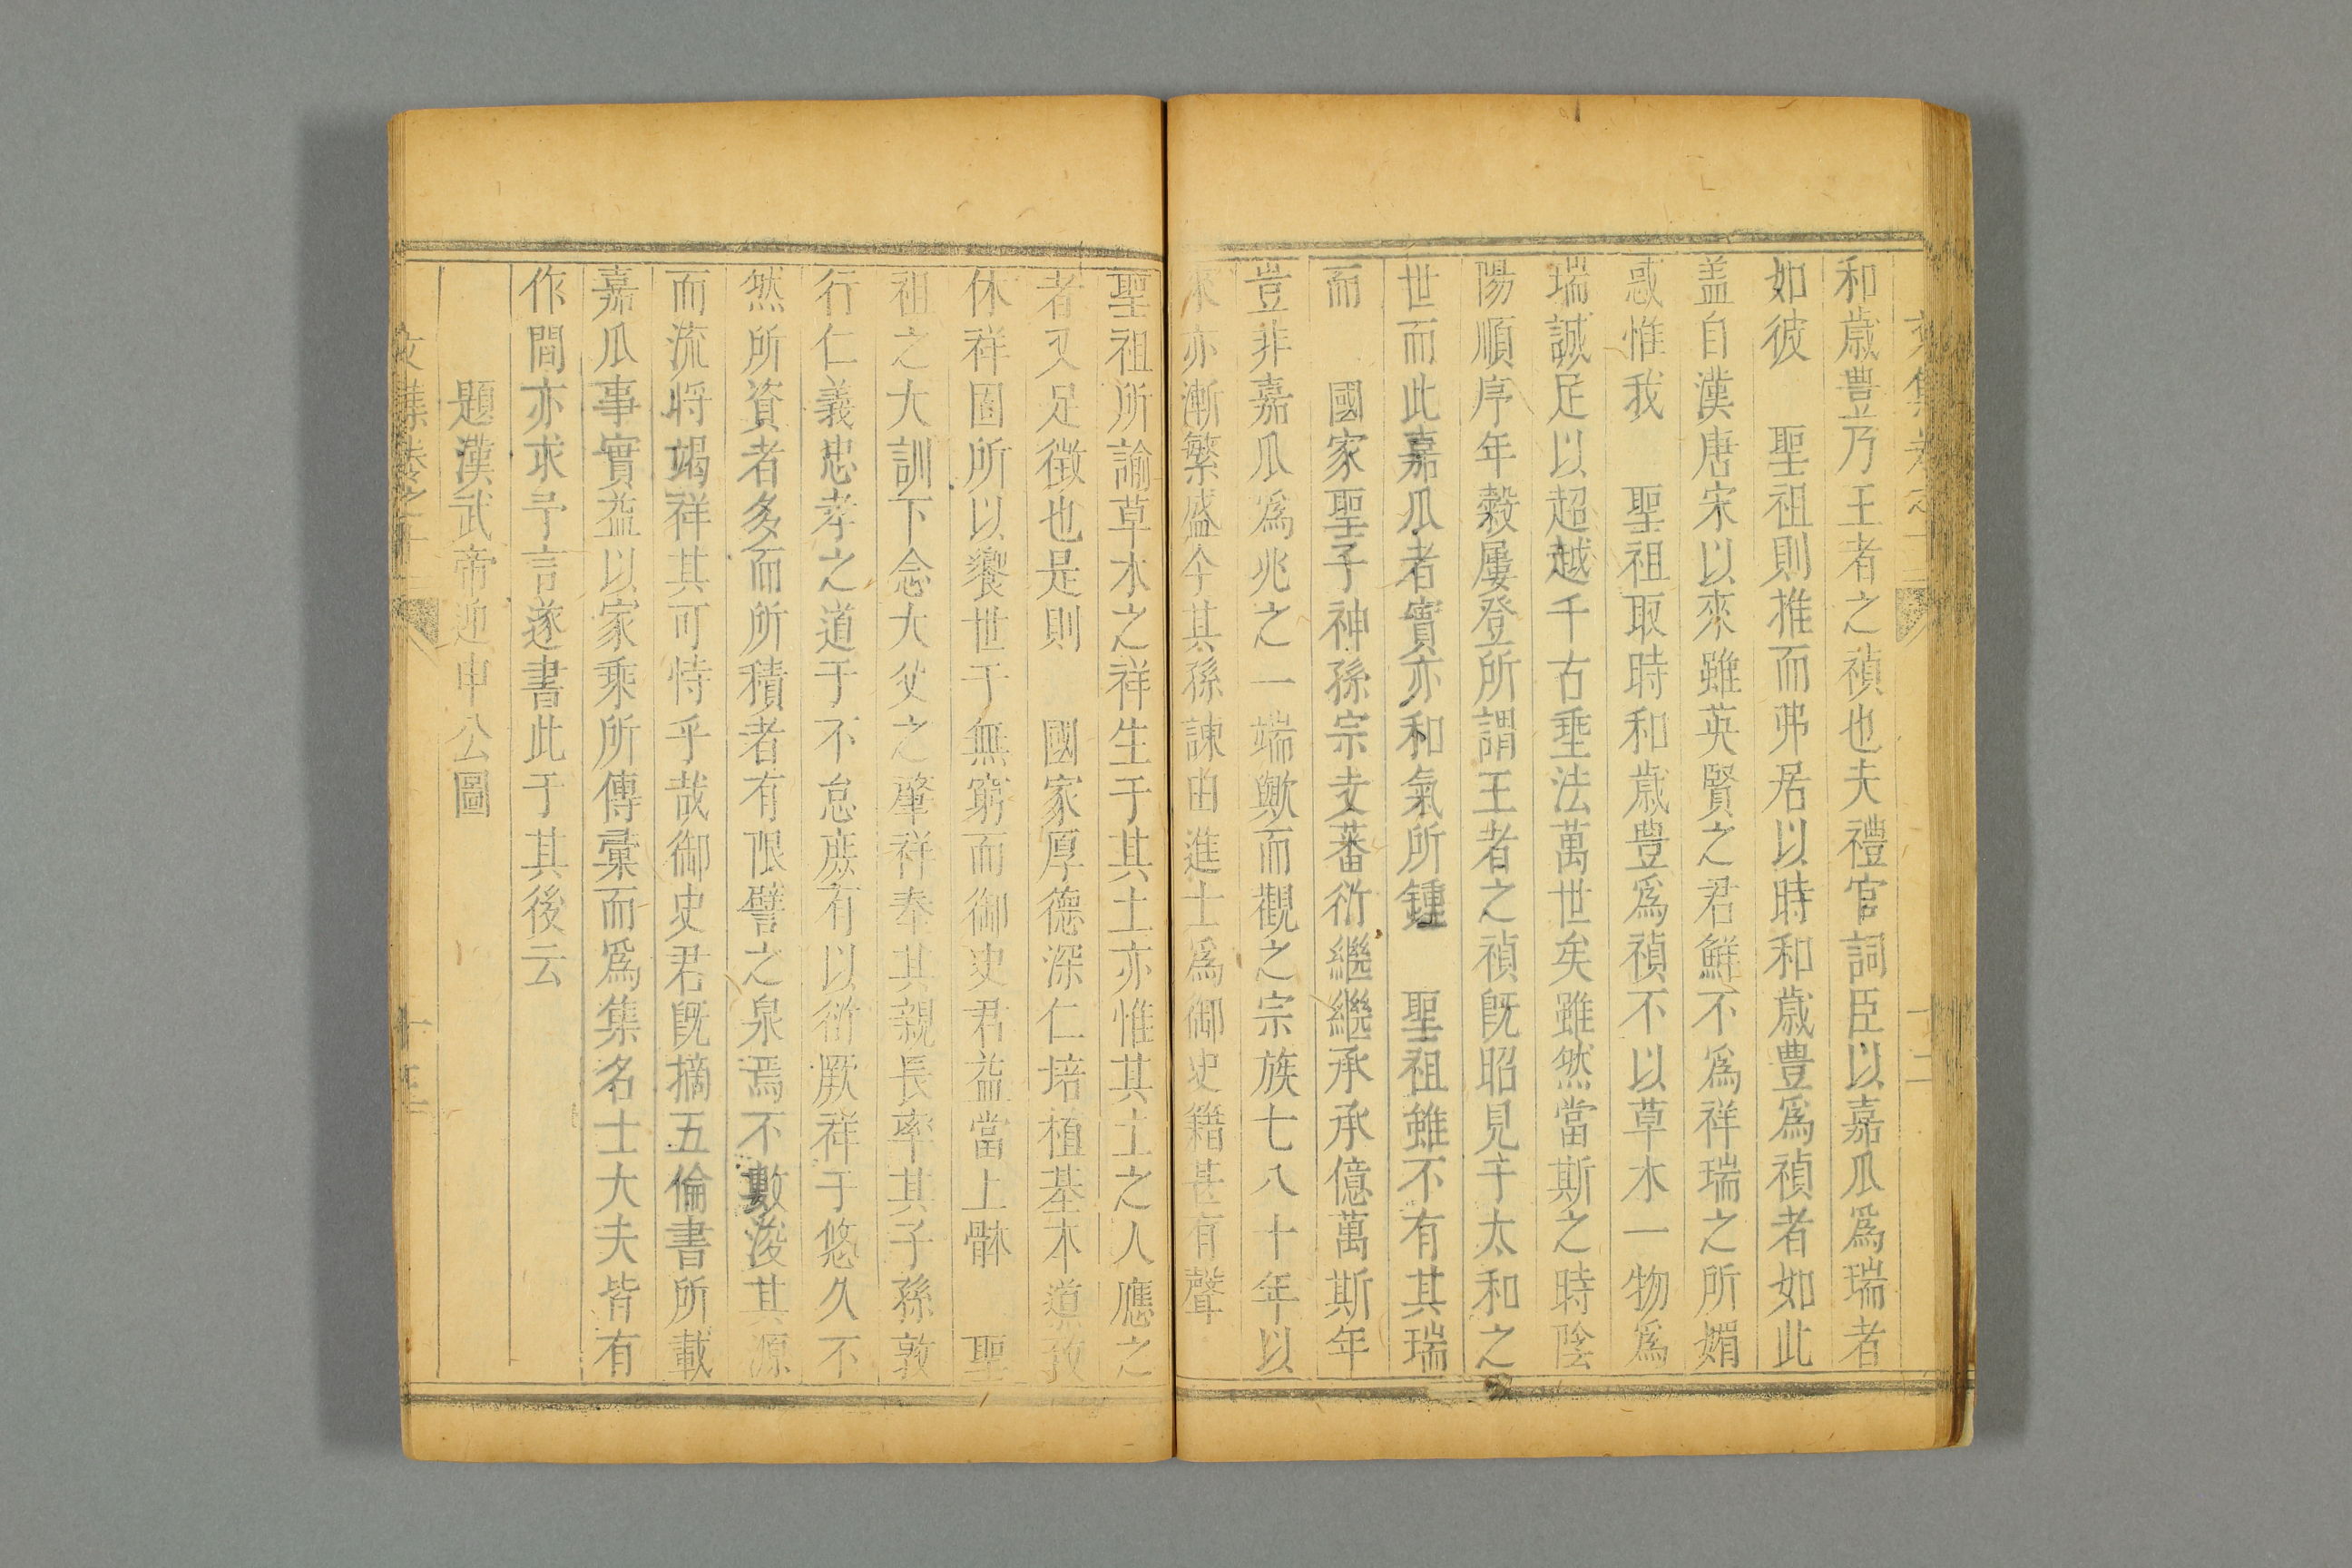 和歳豊乃王者之禎也夫禮官詞臣以嘉瓜爲瑞者
如彼　聖祖則推而弗居以時和歳豊爲禎者如此
盖自漢唐宋以來雖英賢之君鮮不爲祥瑞之所媚
惑惟我　聖祖取時和歳豊爲禎不以草木一物爲
瑞誠足以超越千古垂法萬世矣雖然當斯之時陰
陽順序年糓屢登所謂王者之禎旣昭見于太和之
世而此嘉瓜者實亦和氣所鍾　聖祖雖不有其瑞
而　國家聖子神孫宗支蕃衍繼繼承承億萬斯年
豈非嘉瓜爲兆之一端歟而觀之宗族七八十年以
來亦漸繁盛今其孫諫由進士爲御史籍甚有聲
聖祖所諭草木之祥生于其土亦惟其土之人應之
者又足徴也是則　國家厚德深仁培植基本
休祥固所以饗世于無窮而御史君益當上躰　聖
祖之大訓下念大父之肇祥奉其親長率其子孫敦
行仁義忠孝之道于不怠庻有以衍厥祥于悠久不
然所資者多而所積者有限譬之泉焉不數浚其源
而流将竭祥其可恃乎哉御史君旣摘五倫書所載
嘉瓜事實益以家乘所傳彚而爲集名士大夫皆有
作間亦求予言遂書此于其後云
題漢武帝迎申公圖
文集卷之十二
十三